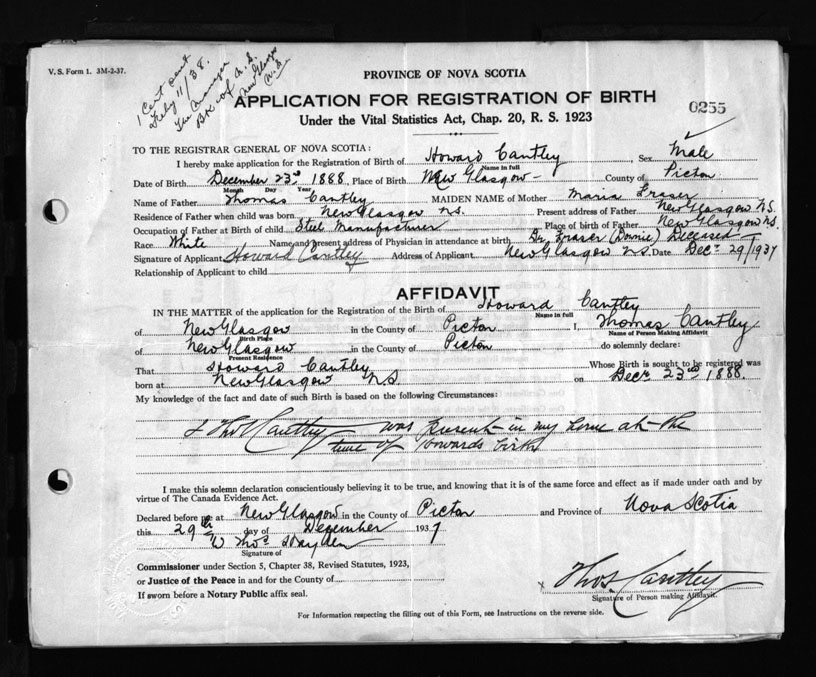 V. S. Form 1. 3M-2-37.
1 Cert sent
Feby 11/38.
The Manager
Bk of N. S.
New Glasgow
N. S.
PROVINCE OF NOVA SCOTIA
APPLICATION FOR REGISTRATION OF BIRTH
0255
Under the Vital Statistics Act, Chap. 20, R. S. 1923
TO THE REGISTRAR GENERAL OF NOVA SCOTIA:
I hereby make application for the Registration of Birth of Howard Cantley Sex Male
Name in full
Date of Birth December 23rd 1888, Place of Birth New Glasgow County of Picton
Month Day Year
Name of Father Thomas Cantley MAIDEN NAME of Mother Maria Fraser
Residence of Father when child was born New Glasgow N.S. Present address of Father New Glasgow N.S.
Occupation of Father at Birth of Child Steel Manufacturer Place of birth of Father New Glasgow N.S.
Race White Name and present address of Physician in attendance at birth Dr Fraser (Downie) Deceased
Signature of Applicant Howard Cantley Address of Applicant New Glasgow N.S. Date Decr 29/1937
Relationship of Applicant to child
AFFIDAVIT
IN THE MATTER of the application for the Registration of Birth of Howard Cantley
Name in full
of New Glasgow in the County of Picton I, Thomas Cantley
Birth Place Name of Person Making Affidavit
of New Glasgow in the County of Picton do solemnly declare:
Present Residence
That Howard Cantley Whose Birth is sought to be registered was
born at New Glasgow N.S. on Decr 23rd 1888.
My knowledge of the fact and date of such Birth is based on the following Circumstances:
I Thos Cantley was present in my home at the
time of Howards birth
I make this solemn declaration conscientiously believing it to be true, and knowing that it is of the same force and effect as if made under oath and by
virtue of The Canada Evidence Act.
Declared before me at New Glasgow in the County of Picton and Province of Nova Scotia
this 29th day of December 1937
W Thos Hayden
Signature of
Commissioner under Section 5, Chapter 38, Revised Statutes, 1923,
or Justice of the Peace in and for the County of
If sworn before a Notary Public affix seal.
x Thos. Cantley
Signature of Person making Affidavit.
For Information respecting the filling out of this Form, see Instructions on the reverse side.